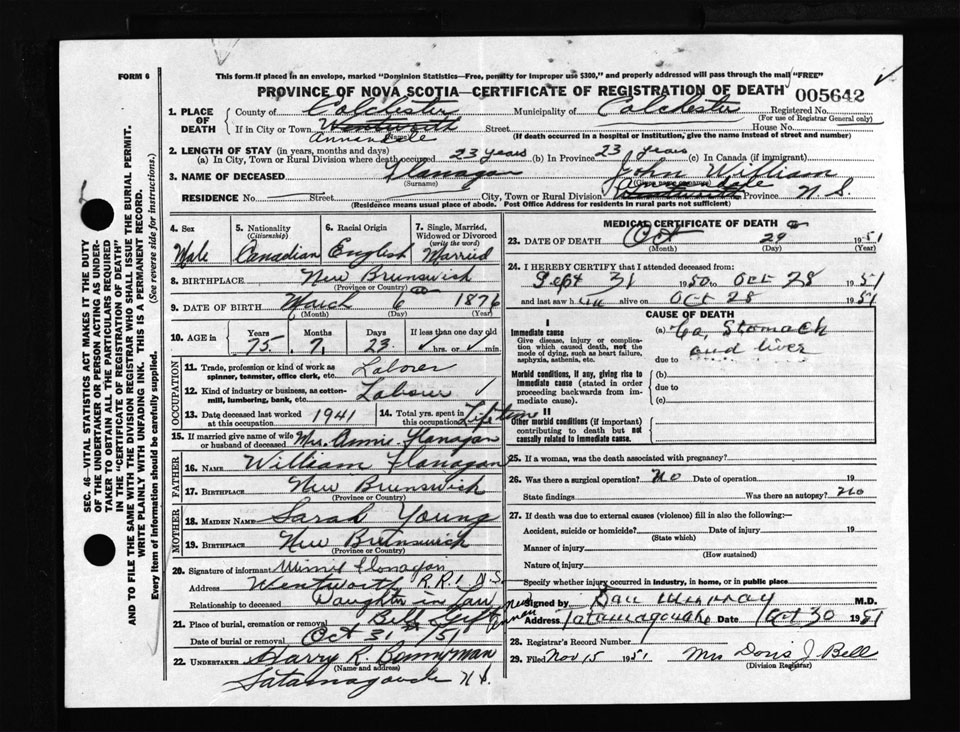 FORM 6
This form if placed in an envelope, marked "Dominion Statistics—Free, penalty for improper use $300," and properly addressed will pass through the mail "FREE"
PROVINCE OF NOVA SCOTIA—CERTIFICATE OF REGISTRATION OF DEATH 005642
1. PLACE OF DEATH County of Colchester Municipality of Colchester Registered No.
(For use of Registrar General only)
If in City or Town Wentworth Street House No.
(Name) (If death occurred in a hospital or institution, give name instead of street and number)
Annandale
2. LENGTH OF STAY (in years, months and days)
(a) In City, Town or Rural Division where death occurred 23 years (b) In Province 23 years (c) In Canada (if immigrant)
3. NAME OF DECEASED Flanagan John William
(Surname)
RESIDENCE No. Street City, Town or Rural Division Annandale Wentworth Province N.S.
(Residence means usual place of abode. Post Office Address for residents in rural parts not sufficient)
4. Sex Male
5. Nationality (Citizenship) Canadian
6. Racial Origin English
7. Single, Married, Widowed or Divorced (write the word) Married
8. BIRTHPLACE New Brunswick
(Province or Country)
9. DATE OF BIRTH March 6 1876
(Month) (Day) (Year)
10. AGE in Years Months Days If less than one day old
75 7 23 hrs. or min.
OCCUPATION
11. Trade, profession or kind of work as spinner, teamster, office clerk, etc. Laborer
12. Kind of industry or business, as cotton-mill, lumbering, bank, etc. Labour
13. Date deceased last worked at this occupation 1941 14. Total yrs. spent in this occupation Lifetime
15. If married give name of wife or husband of deceased Mrs. Annie Flanagan
FATHER
16. NAME William Flanagan
17. BIRTHPLACE New Brunswick
(Province or Country)
MOTHER
18. MAIDEN NAME Sarah Young
19. BIRTHPLACE New Brunswick
(Province or Country)
20. Signature of informant Minnie Flonagan
Address Wentworth R.R.1 N.S.
Relationship to deceased Daughter in Law
21. Place of burial, cremation or removal
Date of burial or removal Oct 31 /51
22. UNDERTAKER Harry R. Bonnyman
(Name and address)
Tatamagouche N.S.
MEDICAL CERTIFICATE OF DEATH
23. DATE OF DEATH Oct 29 1951
(Month) (Day)
24. I HEREBY CERTIFY that I attended deceased from:
Sept 31 1950 to Oct 28 1951
and last saw him alive on Oct 28 1951
CAUSE OF DEATH
I
Immediate cause
Give disease, injury or complication which caused death, not the mode of dying, such as heart failure, asphyxia, asthenia, etc.
(a) Ca, Stomach
and liver
due to
Morbid conditions, if any, giving rise to immediate cause (stated in order proceeding backwards from immediate cause).
(b)
due to
(c)
II
Other morbid conditions (if important) contributing to death but not causally related to immediate cause.
25. If a woman, was the death associated with pregnancy?
26. Was there a surgical operation? No Date of operation 19
State findings Was there an autopsy? No
27. If death was due to external causes (violence) fill in also the following:—
Accident, suicide or homicide? Date of injury 19
(State which)
Manner of injury
(How sustained)
Nature of injury
Specify whether injury occurred in industry, in home, or in public place
Signed by Dan Murray M.D.
Address Tatamagouche Date Oct 30 1951
28. Registrar's Record Number
29. Filed Nov 15 1951 Mrs Doris J. Bell
(Division Registrar)
SEC. 46—VITAL STATISTICS ACT MAKES IT THE DUTY
OF THE UNDERTAKER OR PERSON ACTING AS UNDERTAKER TO OBTAIN ALL THE PARTICULARS REQUIRED
IN THE "CERTIFICATE OF REGISTRATION OF DEATH"
AND TO FILE THE SAME WITH THE DIVISION REGISTRAR WHO SHALL ISSUE THE BURIAL PERMIT.
WRITE PLAINLY WITH UNFADING INK. THIS IS A PERMANENT RECORD.
Every item of information should be carefully supplied. (See reverse side for instructions.)